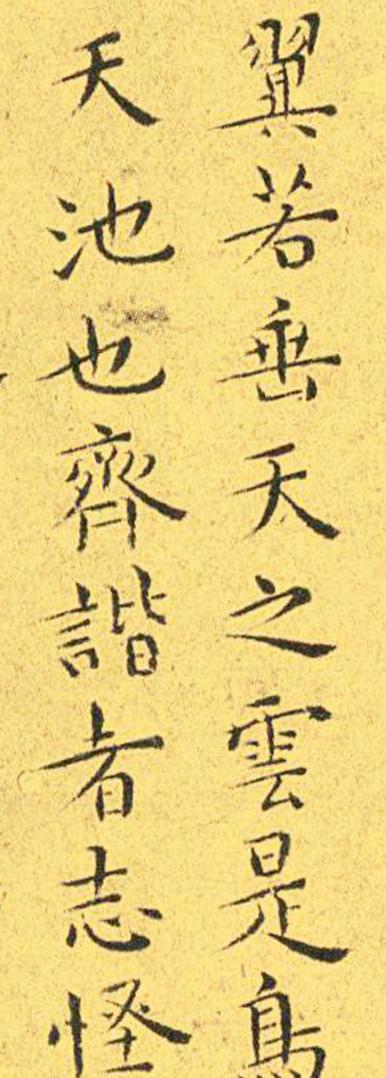 翼若垂天之雲是鳥
天池也齊諧者志怪